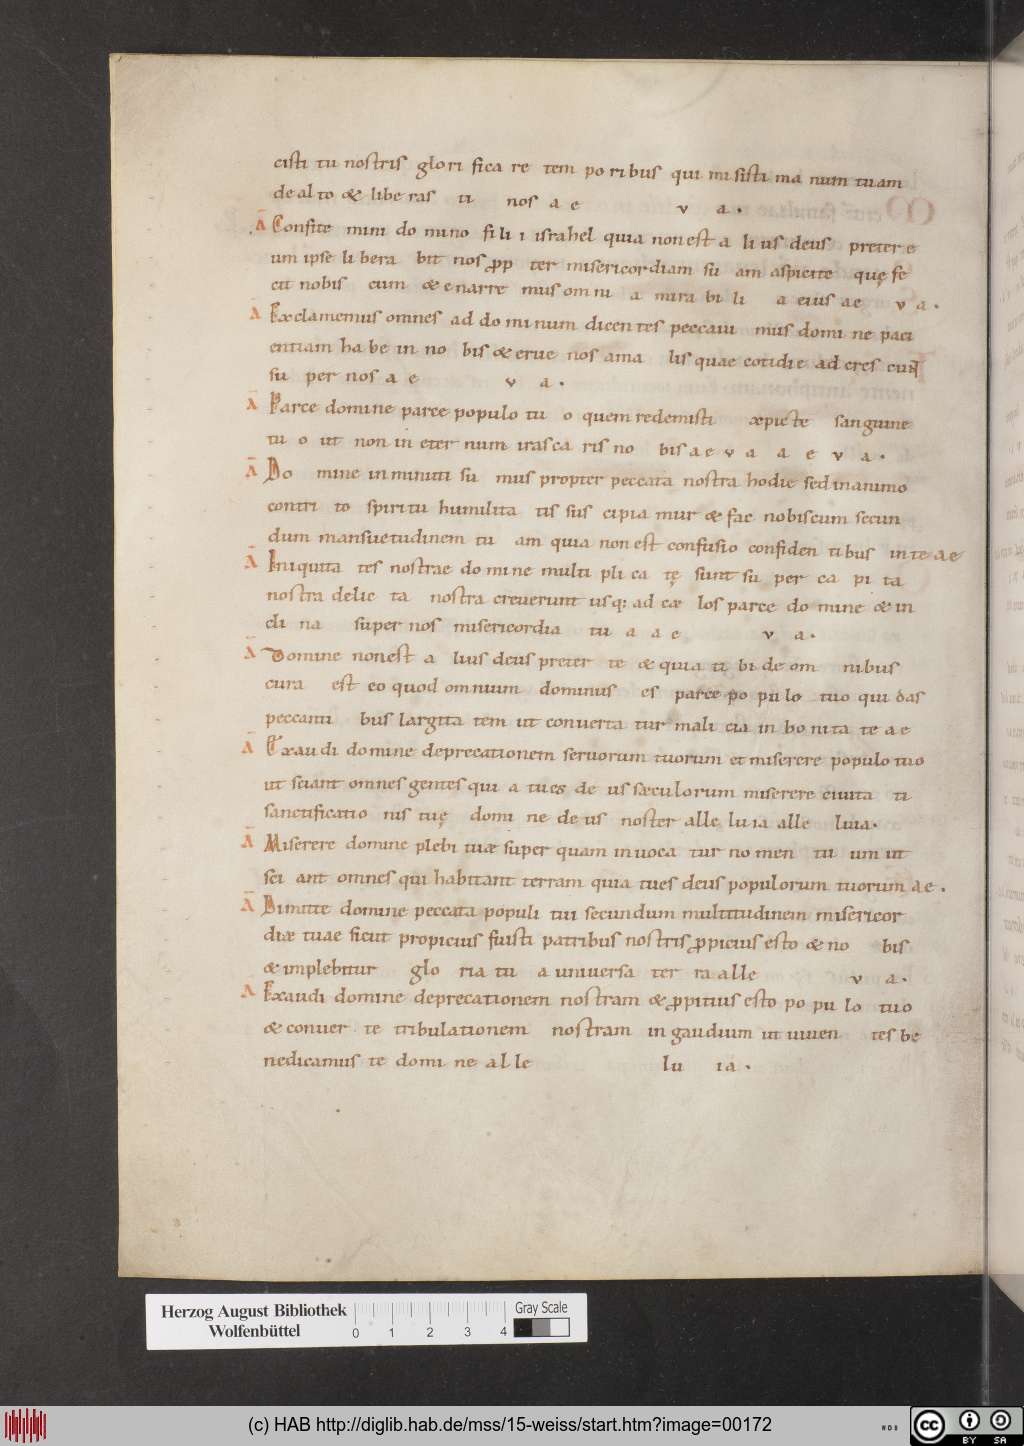 cisti tu nostris glori fica re tem po ribus qui misisti ma num tuam
de al to & libe ras ti nos a e v a.
Ā Confite mini do mino fili i israhel quia non est a li us deus preter e
um ipse li bera bit nos ꝓp ter misericordiam su am aspicite quę fe
cit nobis cum & enarre mus omni a mira bi li a eius ae v a.
Ā Exclamemus omnes ad do mi num dicen tes peccavi mus domi ne paci
entiam ha be in no bis & erue nos a ma lis quae cotidie ad cres cun
su per nos a e v a.
Ā Parce domine parce populo tu o quem redemisti sanguine
tu o ut non in eter num irasca ris no bis a e v a a e v a.
Ā Do mine inminuti su mus propter peccata nostra hodie sed in animo
contri to spiritu humilita tis sus cipia mur & fac nobiscum secun
dum mansuetudinem tu am quia non est confusio confiden tibus in te ae
Ā Iniquita tes nostrae do mine multi pli ca tę sunt su per ca pi ta
nostra delic ta nostra creverunt usq: ad cæ los parce do mine & in
cli na super nos misericordia tu a a e v a.
Ā Domine non est a lius deus preter te & quia ti bi de om nibus
cura est eo quod omnium dominus es parce po pu lo tuo qui das
peccanti bus largita tem ut converta tur mali cia in bo nita te a e
Ā Exau di domine deprecationem servorum tuorum et miserere populo tuo
ut sciant omnes gentes qui a tu es de us sæculorum miserere civita ti
sanctificatio nis tuę domi ne de us noster alle lu ia alle luia.
Ā Miserere domine plebi tuæ super quam invoca tur no men tu um ut
sci ant omnes qui habitant terram quia tu es deus populorum tuorum ae.
Ā Dimitte domine peccata populi tui secundum multitudinem misericor
diæ tuae sicut propicius fuisti patribus nostris ꝓpicius esto & no bis
& implebitur glo ria tu a universa ter ra alle v a.
Ā Exaudi domine deprecationem nostram & ꝓpitius esto po pu lo tuo
& conver te tribulationem nostram in gaudium ut viven tes be
nedicamus te domi ne al le lu ia.
Herzog August Bibliothek
Wolfenbüttel
0 1 2 3 4
Gray Scale
(c) HAB http://diglib.hab.de/mss/15-weiss/start.htm?image=00172
WDB
cc BY SA